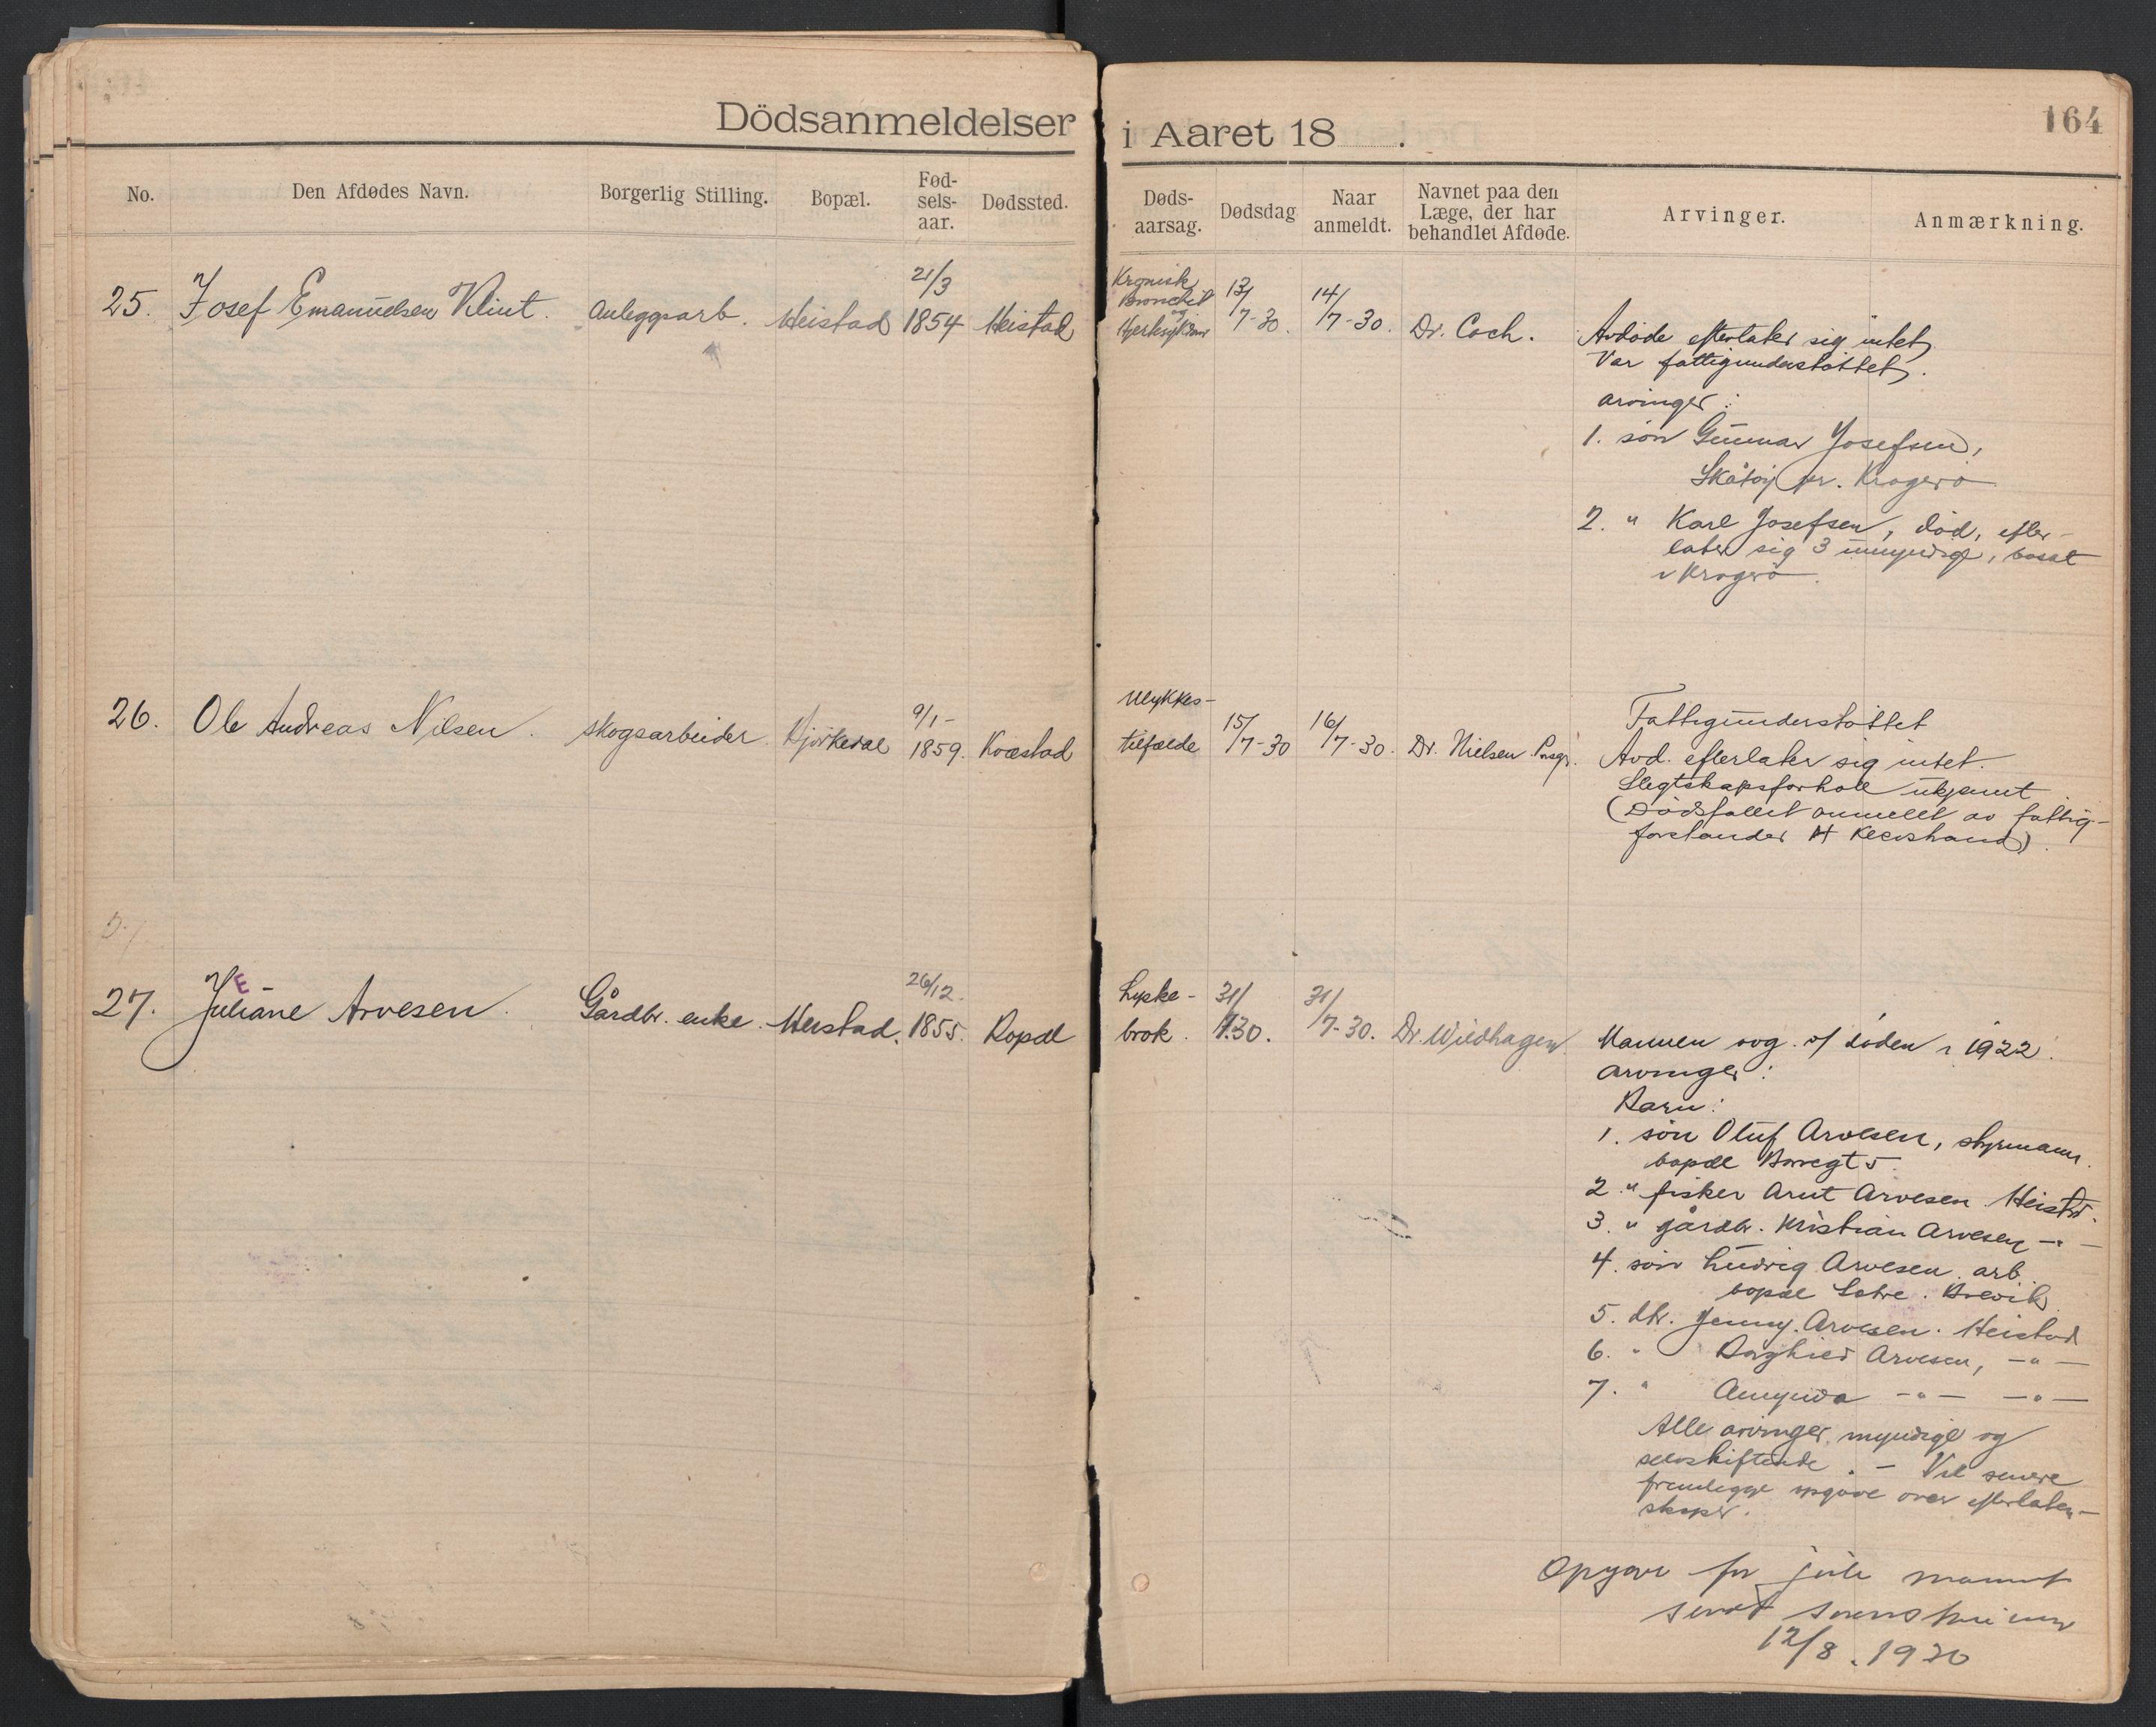 Dödsanmeldelser i Aaret 18 .
164
No.
Den Afdødes Navn.
Borgerlig Stilling.
Bopæl.
Fød-
sels-
aar.
Dødssted.
Døds-
aarsag.
Dødsdag
Naar
anmeldt.
Navnet paa den
Læge, der har
behandlet Afdøde.
Arvinger.
Anmærkning.
25. Josef Emanuelsen Klint. Anleggsarb. Heistad 21/3 1854 Heistad
Kronisk
Bronchit
og
13/7-30. 14/7-30. Dr. Coch.
Avdøde efterlater sig intet,
Var fattigunderstøttet.
arvinger:
1. søn Gunnar Josefsen,
Skåtøy pr. Kragerø
2. " Karl Josefsen, død, efter-
later sig 3 umyndige, bosat
i Kragerø.
26. Ole Andreas Nilsen. skogsarbeider Bjørkedal 9/1- 1859. Kvæstad
Ulykkes-
tilfælde 15/7-30 16/7-30. Dr. Nielsen Porsgr.
Fattigunderstøttet
Avd. efterlater sig intet.
Slegtskapsforhold ukjennt
(Dødsfallet anmeldt av fattig-
forstander H
27. Juliane Arvesen. Gårdbr. enke. Heistad. 26/12. 1855. Bopæl
E
Lyske-
brok. 31/7.30. 31/7-30. Dr. Wildhagen
Mannen avg. v/ døden i 1922.
Arvinger:
Barn:
1. søn Oluf Arvesen, styrmann.
bopæl
2. " fisker Arnt Arvesen Heistad.
3. " gårdbr. Kristian Arvesen -"-
4. søn Ludvig Arvesen, arb.
bopæl Brevik.
5. dtr. Jenny Arvesen. Heistad
6. " Borghild Arvesen, -"-
7. " -"- -"-
Alle arvinger myndige og
selvskiftende. - Vil senere
fremlegge opgave over efterlaten-
skaper.
Opgave for juli
sendt
12/8. 1930